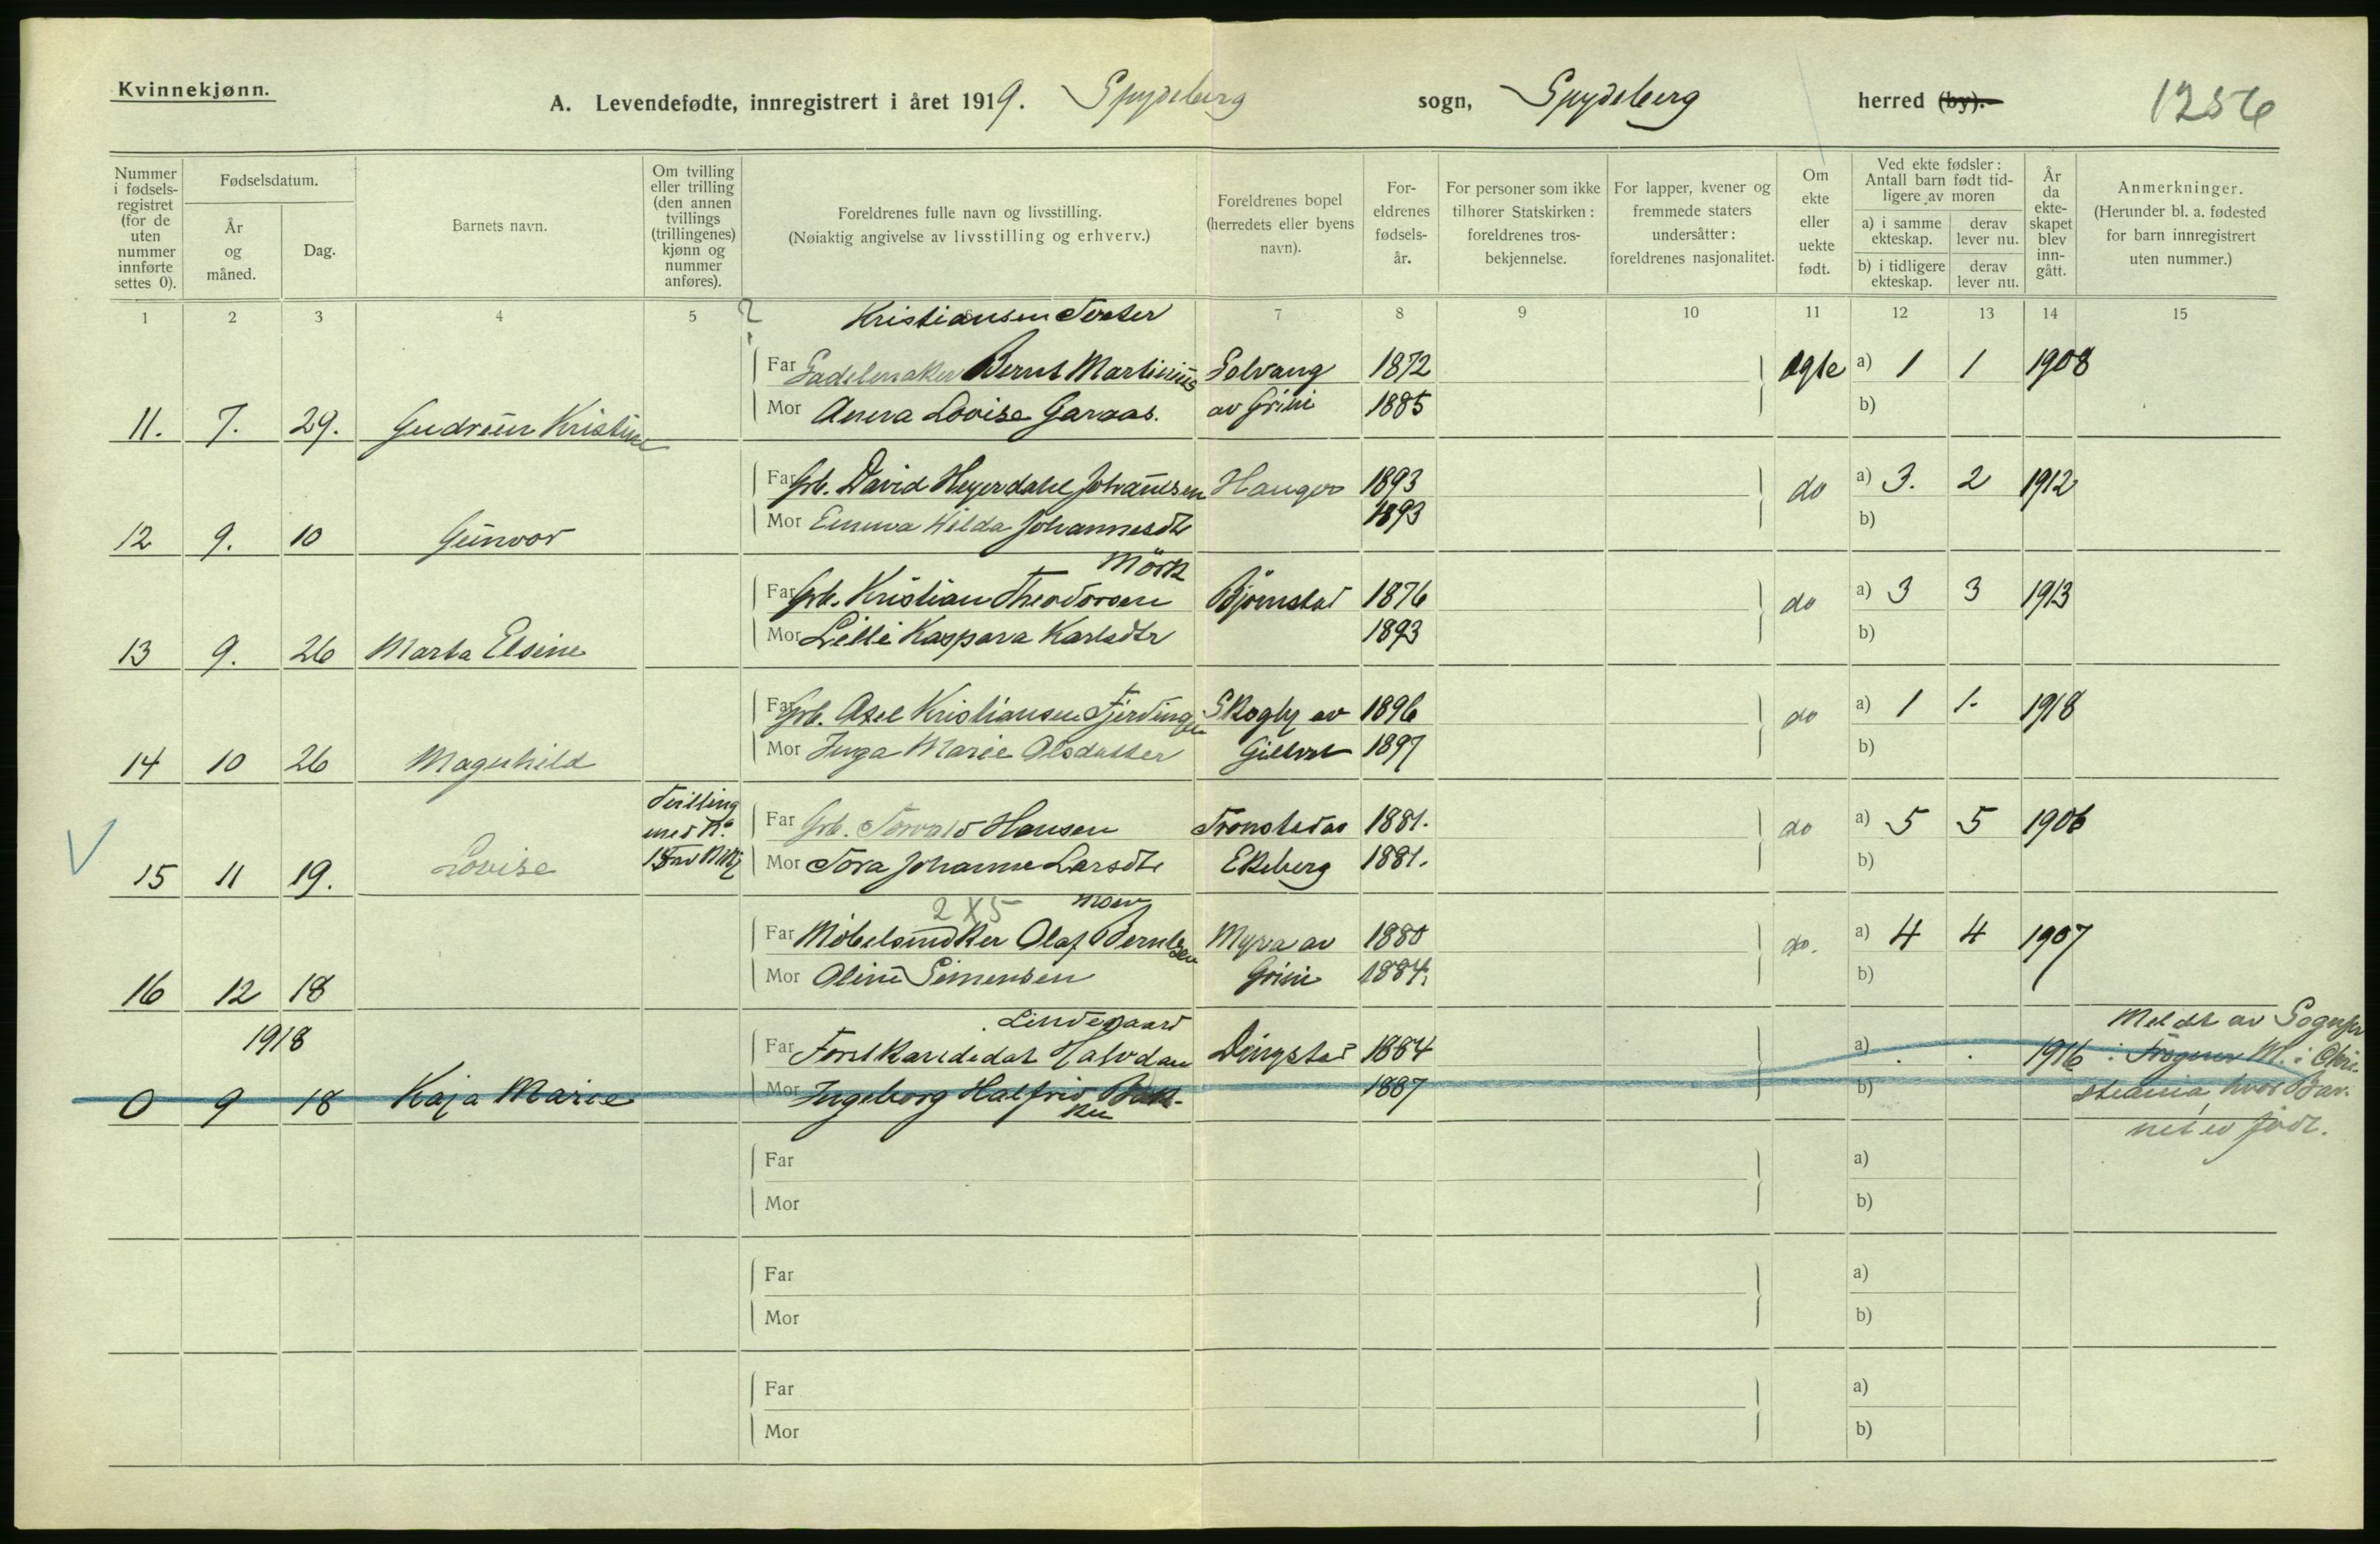 Kvinnekjønn.
A. Levendefødte, innregistrert i året 1919. Spydeberg sogn, Spydeberg herred (by).
1256
Nummer i fødselsregistret (for de uten nummer innførte settes 0).
Fødselsdatum.
År og måned.
Dag.
Barnets navn.
Om tvilling eller trilling (den annen tvillings (trillingenes) kjønn og nummer anføres).
Foreldrenes fulle navn og livsstilling.
(Nøiaktig angivelse av livsstilling og erhverv.)
Foreldrenes bopel (herredets eller byens navn).
Foreldrenes fødselsår.
For personer som ikke tilhører Statskirken: foreldrenes trosbekjennelse.
For lapper, kvener og fremmede staters undersåtter: foreldrenes nasjonalitet.
Om ekte eller uekte født.
Ved ekte fødsler: Antall barn født tidligere av moren
a) i samme ekteskap.
derav lever nu.
b) i tidligere ekteskap.
derav lever nu.
År da ekteskapet blev inngått.
Anmerkninger.
(Herunder bl. a. fødested for barn innregistrert uten nummer.)
1 2 3 4 5 6 7 8 9 10 11 12 13 14 15
? Kristiansen
Far Sadelmaker Bernt Martinius Solvang 1872 ægte a) 1 1 1908
11. 7. 29. Gudrun Kristine Mor Anna Lovise Garaas. av Grini 1885 b)
Far Grb. David Heyerdahl Johannesen Hauger 1893 do a) 3. 2 1912
12 9. 10 Gunvor Mor Emma Hilda Johannesdtr 1893 b)
Mörk
Far Grb. Kristian Theodorsen Bjørnstad 1876 do a) 3 3 1913
13 9. 26 Marta Elsine Mor Lilli Kaspara Karlsdtr 1893 b)
Far Grb. Axel Kristiansen Fjerdingen Skogly av 1896 do a) 1 1. 1918
14 10 26 Magnhild Mor Inga Marie Olsdatter 1897 b)
Tvilling
med N.
Far Grb. Torvald Hansen 1881. do a) 5 5 1906
V 15 11 19. Lovise Mor Tora Johanne Larsdtr Ekeberg 1881. b)
2 X 5 Moen
Far Møbelsnedker Olaf Berntsen Myra av 1880 do. a) 4 4 1907
16 12 18 Mor Oline Simensen Grini 1884. b)
1918
Lindegaard
Far Forstkandidat Halvdan Dingstad 1884 a) . . 1916
0 9 18 Kaja Marie Mor Ingeborg Halfrid Bakken 1887 b)
Meldt av Sognepr
i Frogner M. i Chri-
stiania, hvor Bar-
net er født.
Far a)
Mor b)
Far a)
Mor b)
Far a)
Mor b)